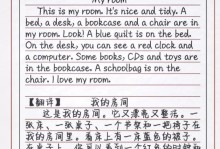 My room
This is my room. It's nice and tidy. A
bed, a desk, a bookcase and a chair are in
my room. Look! A blue quilt is on the bed.
On the desk, you can see a red clock and
a computer. Some books, CDs and toys are
in the bookcase. A schoolbag is on the
chair. I love my room.
【翻译】 我的房间
这是我的房间。它又漂亮又整洁。一
张床、一张桌子、一个书架和一把椅子在
我的房间里。看床上有一床蓝色的被子。